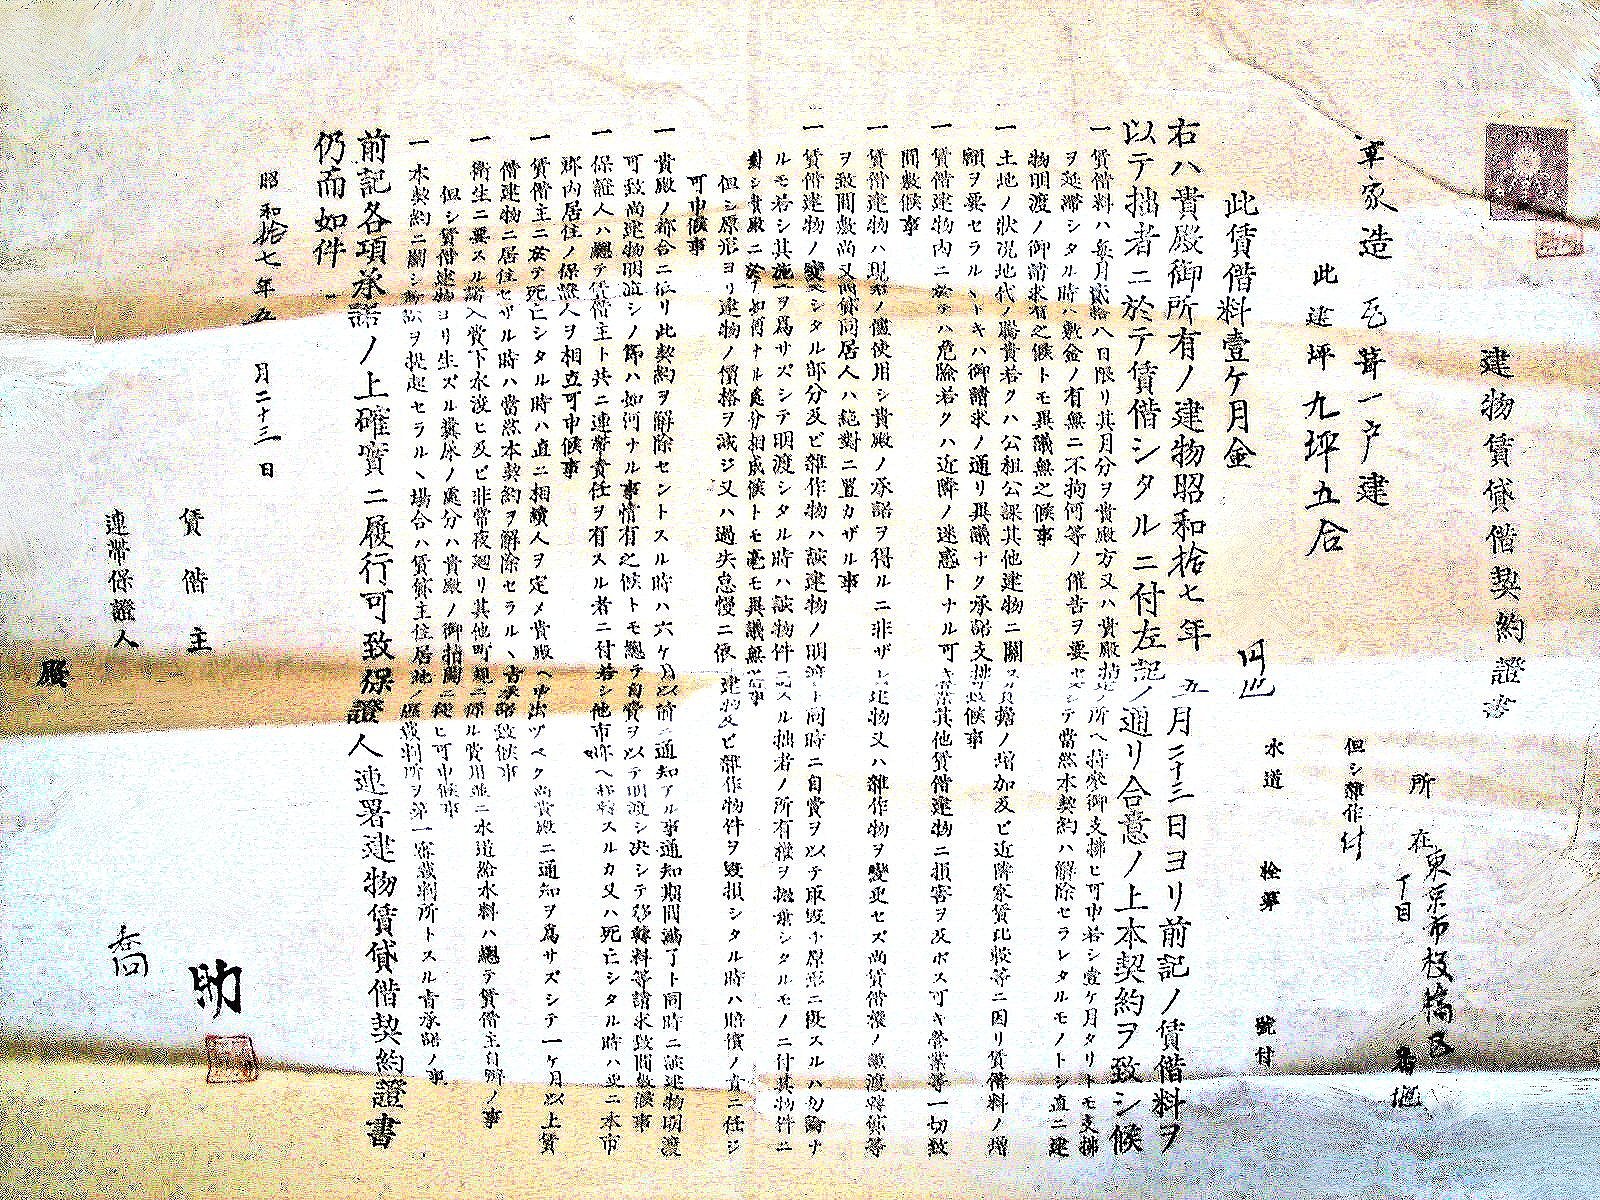 建物賃貸借契約證書
所在東京市板橋区
丁目 番地
但シ雜作付
平家造瓦葺一戸建
此建坪九坪五合
水道 栓第 號付
此賃借料壹ケ月金 円也
右ハ貴殿御所有ノ建物昭和拾七年五月二十三日ヨリ前記ノ賃借料ヲ
以テ拙者ニ於テ賃借シタルニ付左記ノ通リ合意ノ上本契約ヲ致シ候
一賃借料ハ毎月貳拾八日限リ其月分ヲ貴殿方又ハ貴殿指定ノ所ヘ持參御支拂ヒ可申若シ壹ケ月タリトモ支拂
ヲ延滯シタル時ハ敷金ノ有無ニ不拘何等ノ催告ヲ要セズシテ當然本契約ハ解除セラレタルモノトシ直ニ建
物明渡ノ御請求有之候トモ異議無之候事
一土地ノ狀況地代ノ騰貴若クハ公租公課其他建物ニ關スル負擔ノ増加及ビ近隣家賃比較等ニ因リ賃借料ノ増
額ヲ要セラルヽトキハ御請求ノ通リ異議ナク承諾支拂可致候事
一賃借建物内ニ於テハ危險若クハ近隣ノ迷惑トナル可キ營業其他賃借建物ニ損害ヲ及ボス可キ營業等一切致
間敷候事
一賃借建物ハ現在ノ儘使用シ貴殿ノ承諾ヲ得ルニ非ザレバ建物又ハ雜作物ヲ變更セズ尚賃借權ノ讓渡轉貸等
ヲ致間敷尚又同居人ハ絶對ニ置カザル事
一賃借建物ノ變更シタル部分及ビ雜作物ハ該建物ノ明渡ト同時ニ自費ヲ以テ取毀チ原形ニ復スルハ勿論ナ
ルモ若シ其施工ヲ爲サズシテ明渡シタル時ハ該物件ニ對スル拙者ノ所有權ヲ抛棄シタルモノニ付其物件ニ
對シ貴殿ニ於テ如何ナル處分相成候トモ毫モ異議無之事
但シ原形ヨリ建物ノ價格ヲ減ジ又ハ過失怠慢ニ依リ建物及ビ雜作物件ヲ毀損シタル時ハ賠償ノ責ニ任ジ
可申候事
一貴殿ノ都合ニ依リ此契約ヲ解除セントスル時ハ六ケ月以前ニ通知アル事通知期間滿了ト同時ニ該建物明渡
可致尚建物明渡シノ節ハ如何ナル事情有之候トモ總テ自費ヲ以テ明渡シ決シテ移轉料等請求致間敷候事
一保證人ハ總テ賃借主ト共ニ連帶責任ヲ有スル者ニ付若シ他市郡ヘ移轉スルカ又ハ死亡シタル時ハ更ニ本市
郡内居住ノ保證人ヲ相立可申候事
一賃借主ニ於テ死亡シタル時ハ直ニ相續人ヲ定メ貴殿ヘ申出ヅベク尚貴殿ニ通知ヲ爲サズシテ一ケ月以上賃
借建物ニ居住セザル時ハ當然本契約ヲ解除セラルヽ旨承諾致候事
一衞生ニ要スル諸入費下水浚ヒ及ビ非常夜廻リ其他町規ニ係ル費用並ニ水道給水料ハ總テ賃借主負辨ノ事
但シ賃借建物ヨリ生ズル糞尿ノ處分ハ貴殿ノ御指圖ニ從ヒ可申候事
一本契約ニ關シ訴訟ヲ提起セラルヽ場合ハ賃貸主住居地ノ所轄裁判所ヲ第一審裁判所トスル旨承諾ノ事
前記各項承諾ノ上確實ニ履行可致保證人連署建物賃貸借契約證書
仍而如件
昭和拾七年五月二十三日
賃借主 助
連帶保證人 喬
殿